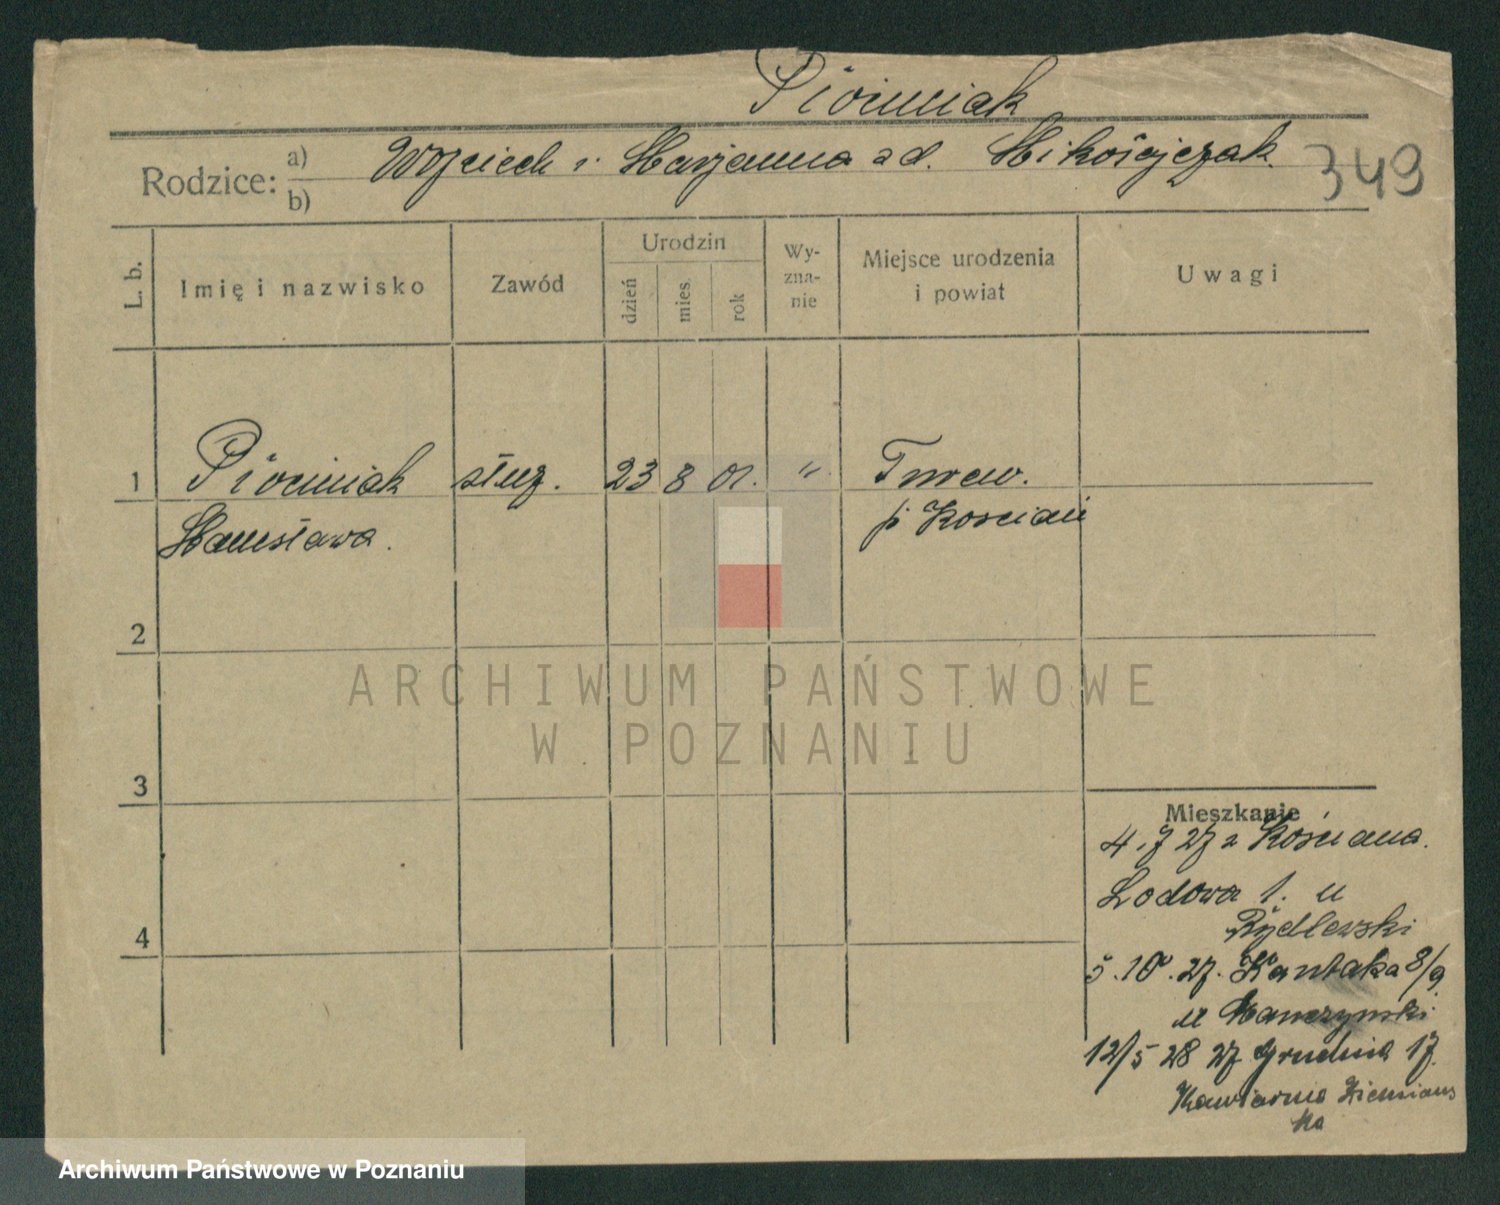 Piociniak
Rodzice: a) b) Wojciech i Marjanna z d. Mikołojczak. 349
L. b. Imię i nazwisko Zawód Urodzin dzień mies. rok Wy-zna-nie Miejsce urodzenia i powiat Uwagi
1 Piociniak służ. 23 8 01. " Turew.
Stanisława. p Kościań
2
ARCHIWUM PAŃSTWOWE
W POZNANIU
3
Mieszkanie
4.7 27 z Kościana.
Lodowa 1. u
Rydlewski
4
5.10.27. Kantaka 8/9
u
12/5 28 27 Grudnia 17.
Kawiarnia Ziemians
ka
Archiwum Państwowe w Poznaniu